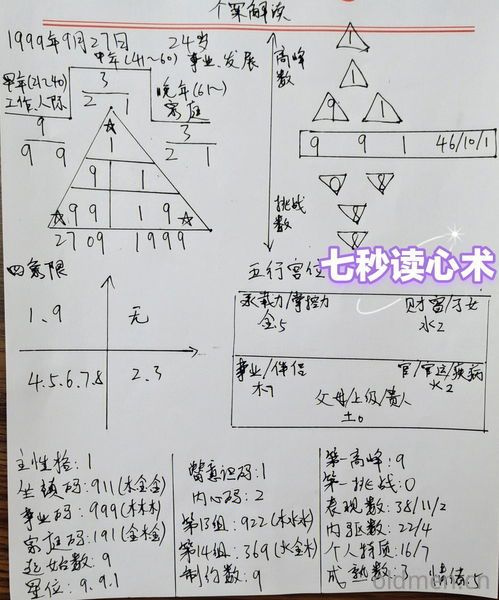 个案解读
1999年9月27日 24岁
中年(41~60) 事业.发展
早年(21~40)
工作.人际
3
2 1
晚年(61~)
家庭
9
9 9
3
2 1
1
9 1
9 9 1 9
2709 1999
高峰数
1
1
9 1
9 9 1 46/10/1
0 8
8
8
挑战数
四象限
1、9 无
4.5.6.7.8 2.3
五行宫位
七秒读心术
承载力/掌控力
金5
财富/子女
水2
事业/伴侣
木7
官/官运/疾病
火2
父母/上级/贵人
土0
主性格:1
坐镇码:911(木金金)
事业码:999(木木木)
家庭码:191(金木金)
起始数:9
星位:9.9.1
潜意识码:1
内心码:2
第13组:922(木水水)
第14组:369(火金木)
制约数:9
第一高峰:9
第一挑战:0
表现数:38/11/2
内驱数:22/4
个人特质:16/7
成熟数:3 情绪5
oldmen.cn